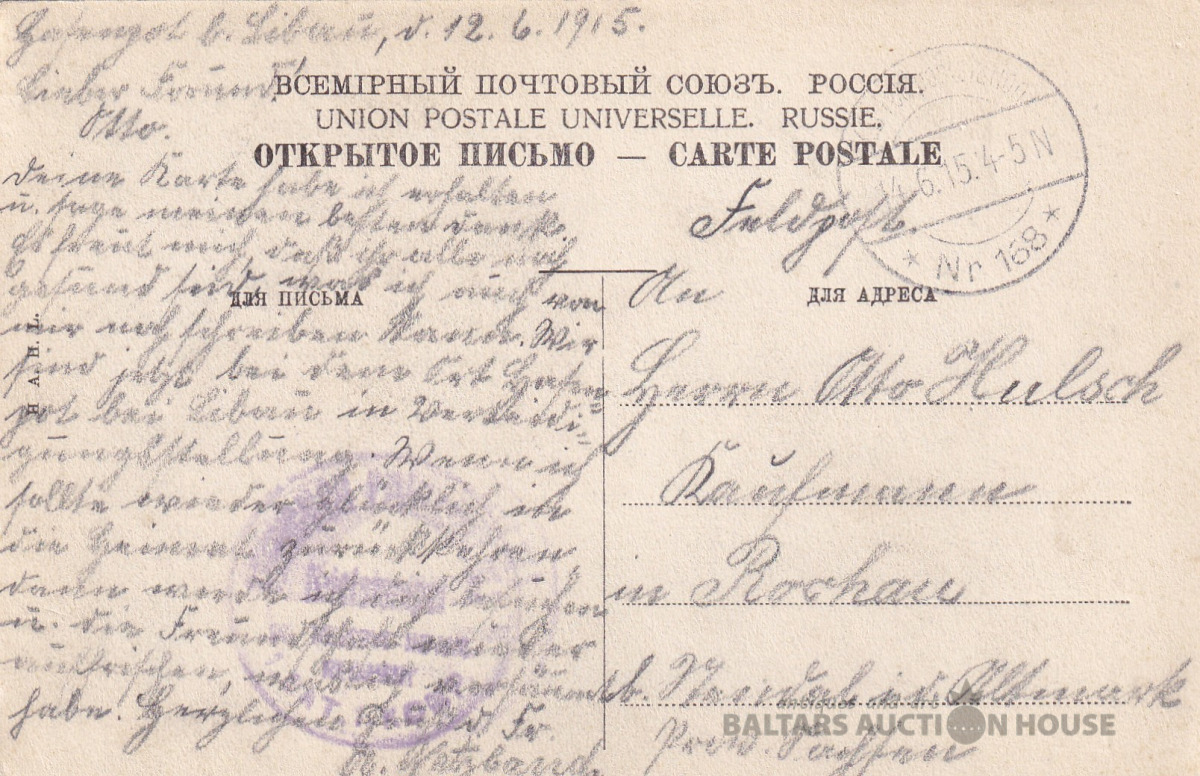 Hasenpot b. Libau, d. 12. 6. 1915.
Lieber Freund
Otto.
ВСЕМІРНЫЙ ПОЧТОВЫЙ СОЮЗЪ. РОССІЯ.
UNION POSTALE UNIVERSELLE. RUSSIE.
ОТКРЫТОЕ ПИСЬМО — CARTE POSTALE
Deine Karte habe ich erhalten
u. sage meinen besten Dank.
Es freut mich, daß ihr alle noch
gesund seid, was ich auch von
mir noch schreiben kann. Wir
sind jetzt bei dem Ort Hasen
pot bei Libau in Verteidi-
gungsstellung. Wenn ich
sollte wieder glücklich in
die Heimat zurückkehren,
dann werde ich dich besuchen
u. die Freundschaft wieder
auffrischen, was ich versäumt
habe. Herzlichen Gruß d. Fr.
ДЛЯ ПИСЬМА
ДЛЯ АДРЕСА
Feldpost
14.6.15.4-5N
* Nr 168 *
An
Herrn Otto Hulsch
Kaufmann
in Rochau
b. Stendal i. d. Altmark
Prov. Sachsen
BALTARS AUCTION HOUSE